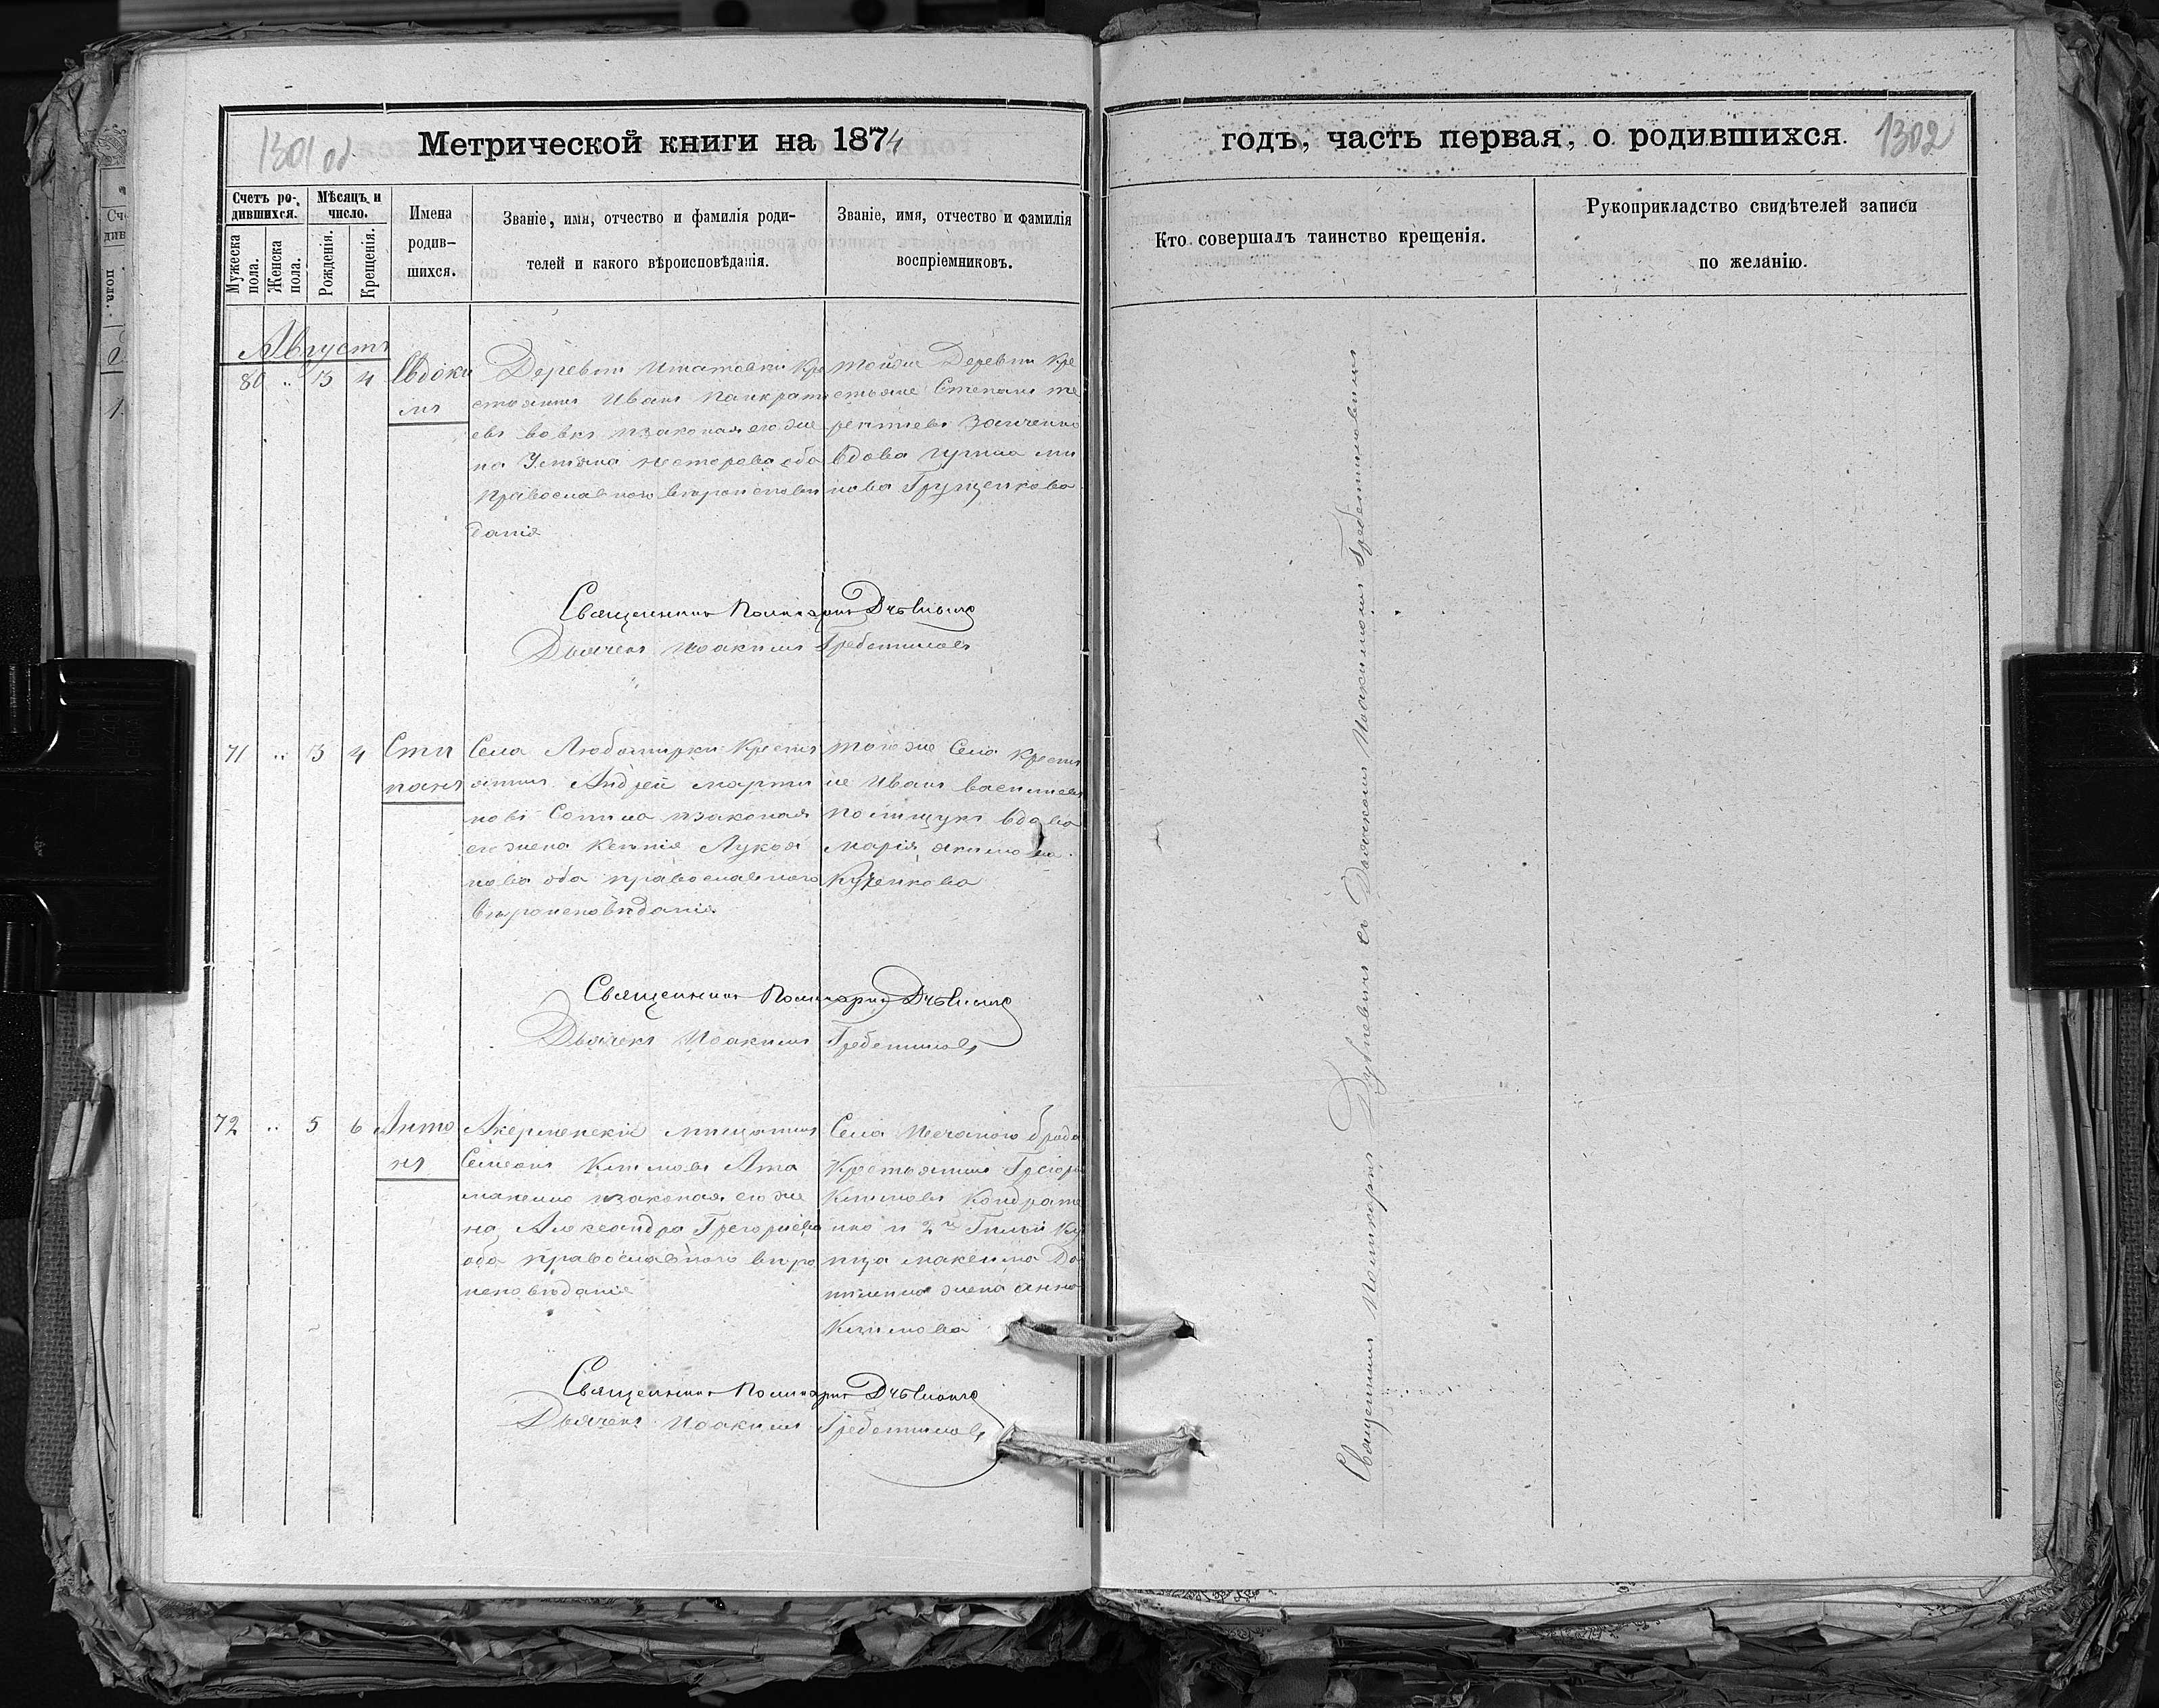 1301 об
Метрической книги на 1874
Счетъ ро-
дившихся.
Мѣсяцъ и
число.
Мужеска
пола.
Женска
пола.
Рожденія.
Крещенія.
Имена
родив-
шихся.
Званіе, имя, отчество и фамилія роди-
телей и какого вѣроисповѣданія.
Званіе, имя, отчество и фамилія
воспріемниковъ.
Августъ
80 " 3 4 Евдоки
мъ
Деревни Игнатовки Кре
стьянинъ Иванъ Панкрать
евъ Вовкъ изаконая его же
на Ульяна Нестерова оба
православного вѣроисповѣ
данія
тойже Деревни Кре
стьяне Степанъ Те
рентіевъ Заиченко
вдова
нова Грущенкова
Священникъ Поликарпъ
Дьячекъ Иоакимъ Гребетниковъ
71 " 3 4 Сте
панъ
Села Любомирки Кресть
янинъ Андрей Марти
новъ изаконая
его жена Ксенія Лукья
нова оба православного
вѣроисповѣданія
тогоже Села Кресть
не Иванъ Василіевъ
Полищукъ вдова
Марія Якимова
Куценкова
Священникъ Поликарпъ
Дьячекъ Иоакимъ Гребетниковъ
72 " 5 6 Анто
нъ
Акерменскій мѣщанинъ
Семенъ Климовъ Ата
маненко изаконая его же
на Александра Григоріева
оба православного вѣро
исповѣданія
Села Песчаного брода
Крестьянинъ Григорі
Климовъ Кондрате
нко и 2й Гильи Ку
пца Максима До
жена Анна
Климова
Священникъ Поликарпъ
Дьячекъ Иоакимъ Гребетниковъ
годъ, часть первая, о родившихся.
1302
Кто совершалъ таинство крещенія.
Рукоприкладство свидѣтелей записи
по желанію.
Священникъ Поликарпъ съ Дьячкомъ Иоакимомъ Гребетниковымъ